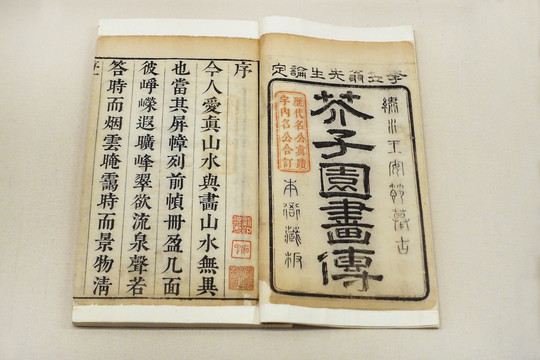 李笠翁先生論定
繡水王安節摹古
芥子園畫傳
歷代名公真蹟
宇內名公合訂
本衙藏板
序
今人愛真山水與畫山水無異
也當其屏幛列前幀冊盈几面
彼崢嶸遐曠峰翠欲流泉聲若
答時而烟雲晻靄時而景物清